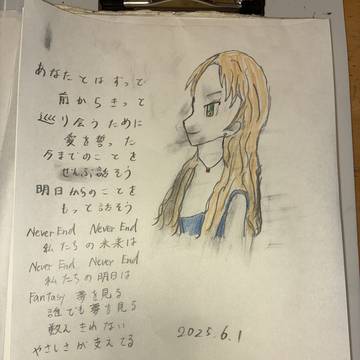 あなたとはずっで
前からきっと
巡り会うために
愛を誓った
今までのことを
ぜんぶ話そう
明日からのことを
もっと話そう
Never End Never End
私たちの未来は
Never End Never End
私たちの明日は
Fantasy 夢を見る
誰でも夢を見る
数えきれない
やさしさが支えてる
2025.6.1